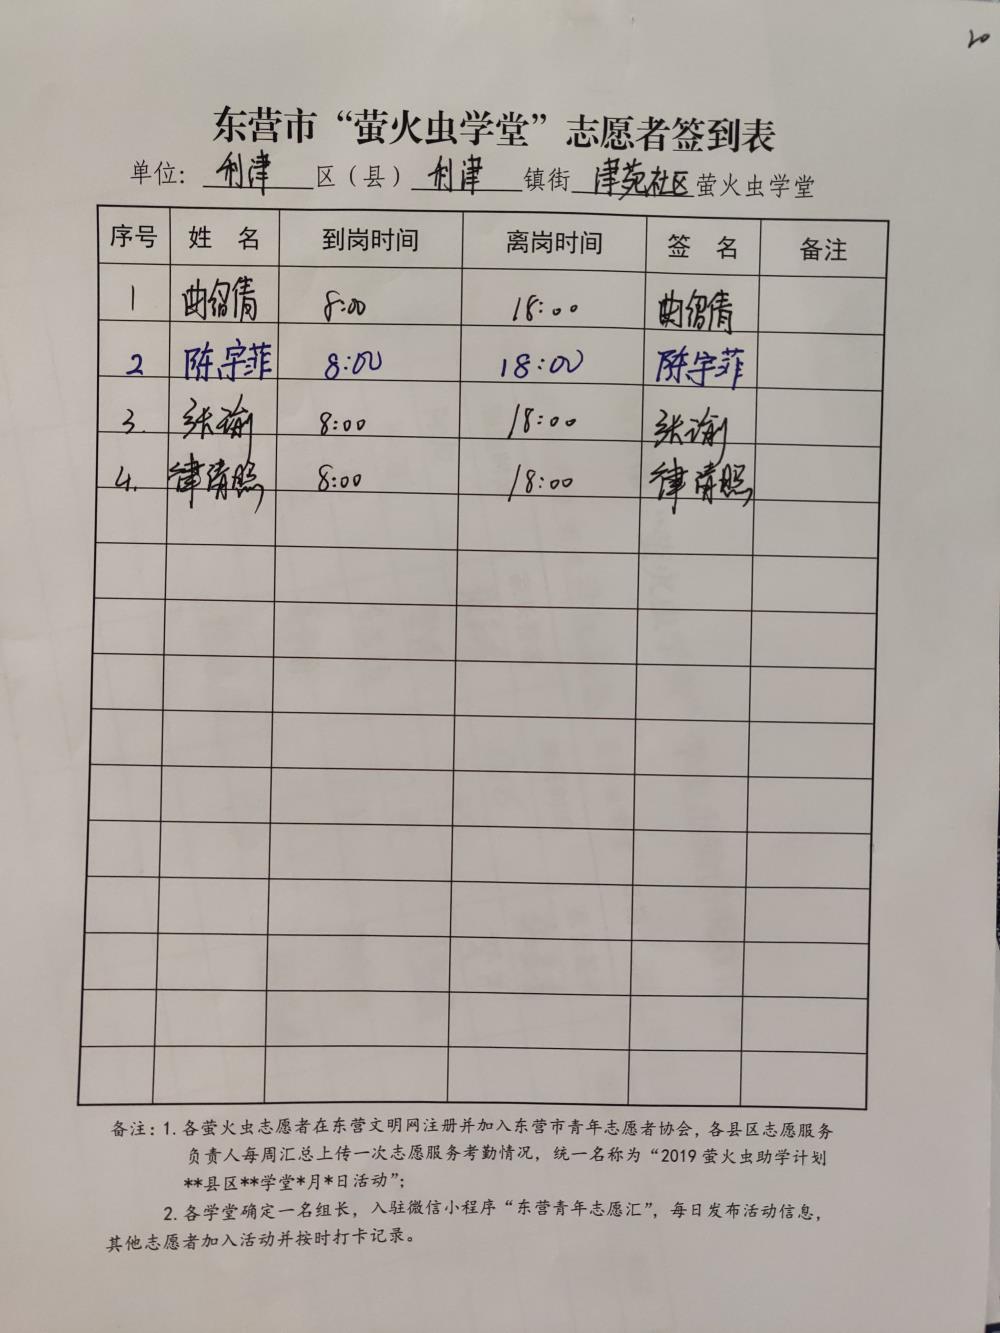 20
东营市“萤火虫学堂”志愿者签到表
单位：利津区（县）利津镇街津苑社区萤火虫学堂
序号 姓 名 到岗时间 离岗时间 签 名 备注
1 曲绍倩 8:00 18:00 曲绍倩
2 陈宇菲 8:00 18:00 陈宇菲
3. 张谕 8:00 18:00 张谕
4. 律清照 8:00 18:00 律清照
备注：1. 各萤火虫志愿者在东营文明网注册并加入东营市青年志愿者协会，各县区志愿服务
负责人每周汇总上传一次志愿服务考勤情况，统一名称为“2019 萤火虫助学计划
**县区**学堂*月*日活动”；
2. 各学堂确定一名组长，入驻微信小程序“东营青年志愿汇”，每日发布活动信息，
其他志愿者加入活动并按时打卡记录。